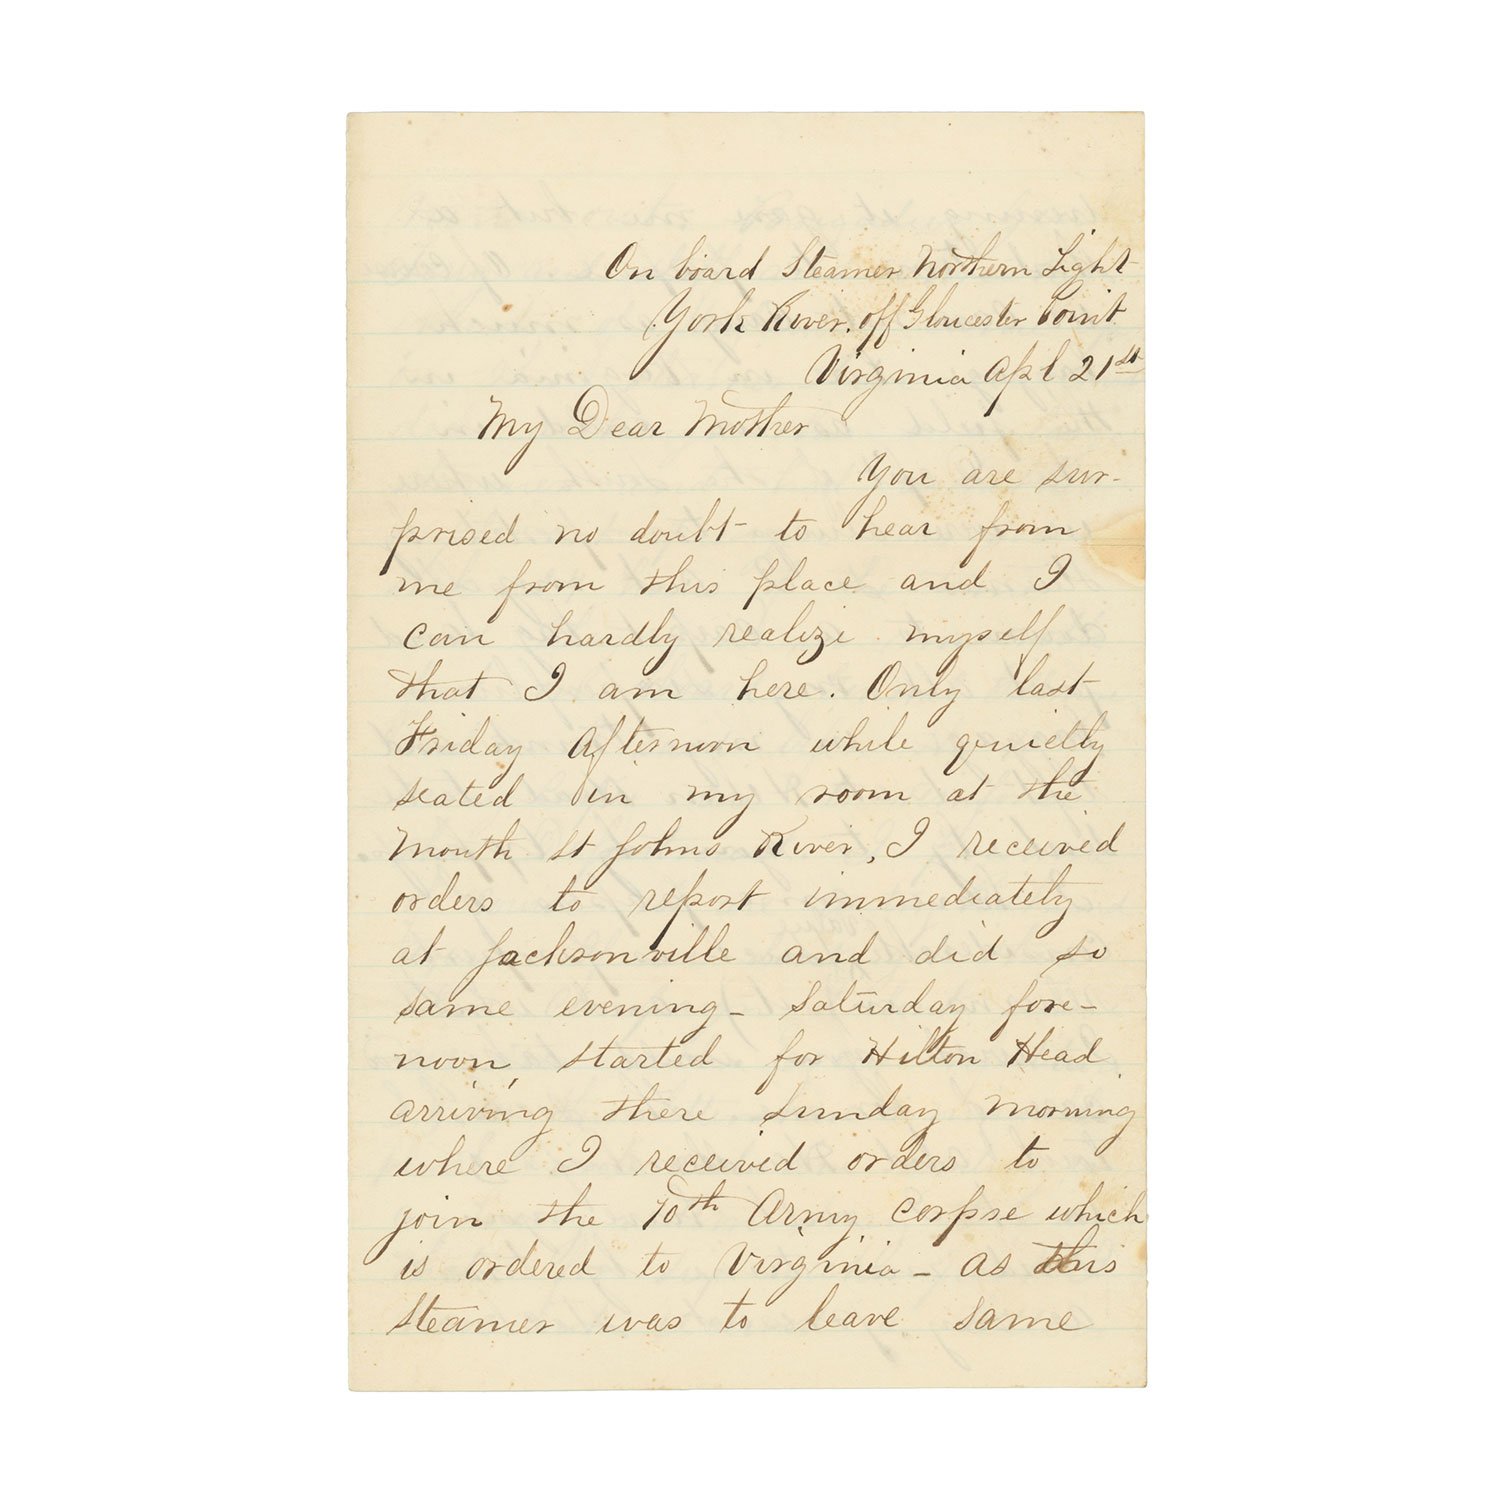 On board Steamer Northern Light
York River, off Gloucester Point
Virginia Apl 21st
My Dear Mother
You are sur-
prised no doubt to hear from
me from this place and I
can hardly realize myself
that I am here. Only last
Friday afternoon while quietly
seated in my room at the
Mouth St Johns River, I received
orders to report immediately
at Jacksonville and did so
same evening - Saturday fore-
noon, started for Hilton Head
arriving there Sunday morning
where I received orders to
join the 10th Army Corpse which
is ordered to Virginia - As this
Steamer was to leave same